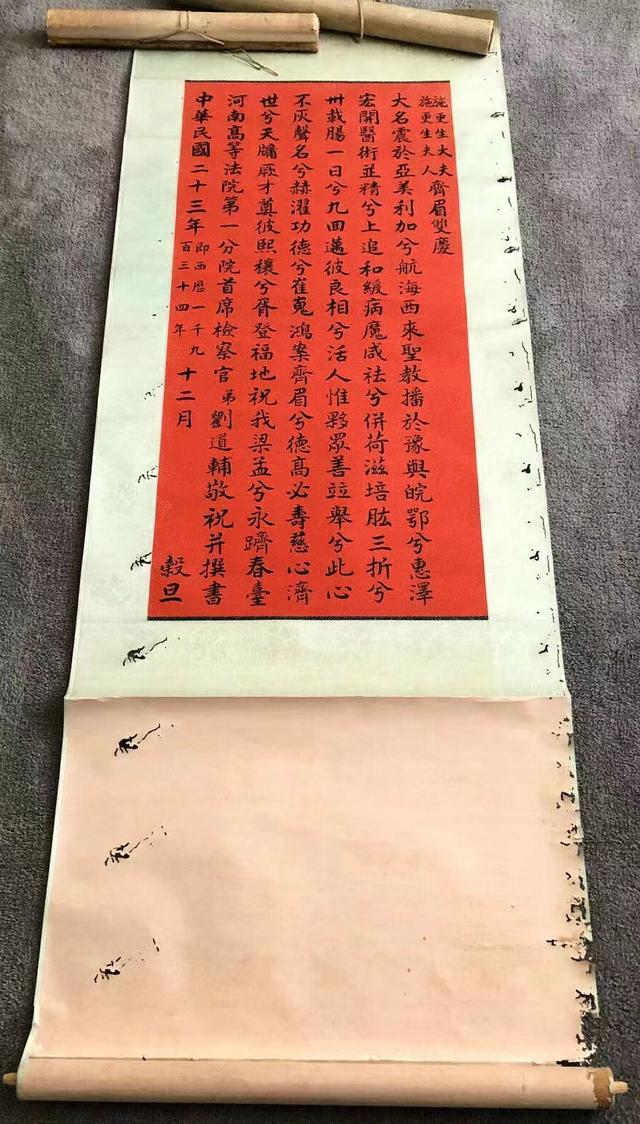 施更生大夫
施更生夫人
齊眉雙慶
大名震於亞美利加兮航海西來聖教播於豫與皖鄂兮惠澤
宏開醫術並精兮上追和緩病魔咸祛兮併荷滋培肱三折兮
卅載腸一日兮九回邁彼良相兮活人惟夥眾善竝舉兮此心
不灰聲名兮赫濯功德兮崔嵬鴻案齊眉兮德高必壽慈心濟
世兮天牖厥才奠彼熙穰兮胥登福地祝我梁孟兮永躋春臺
河南高等法院第一分院首席檢察官弟劉道輔敬祝并撰書
中華民國二十三年即西曆一千九百三十四年十二月穀旦